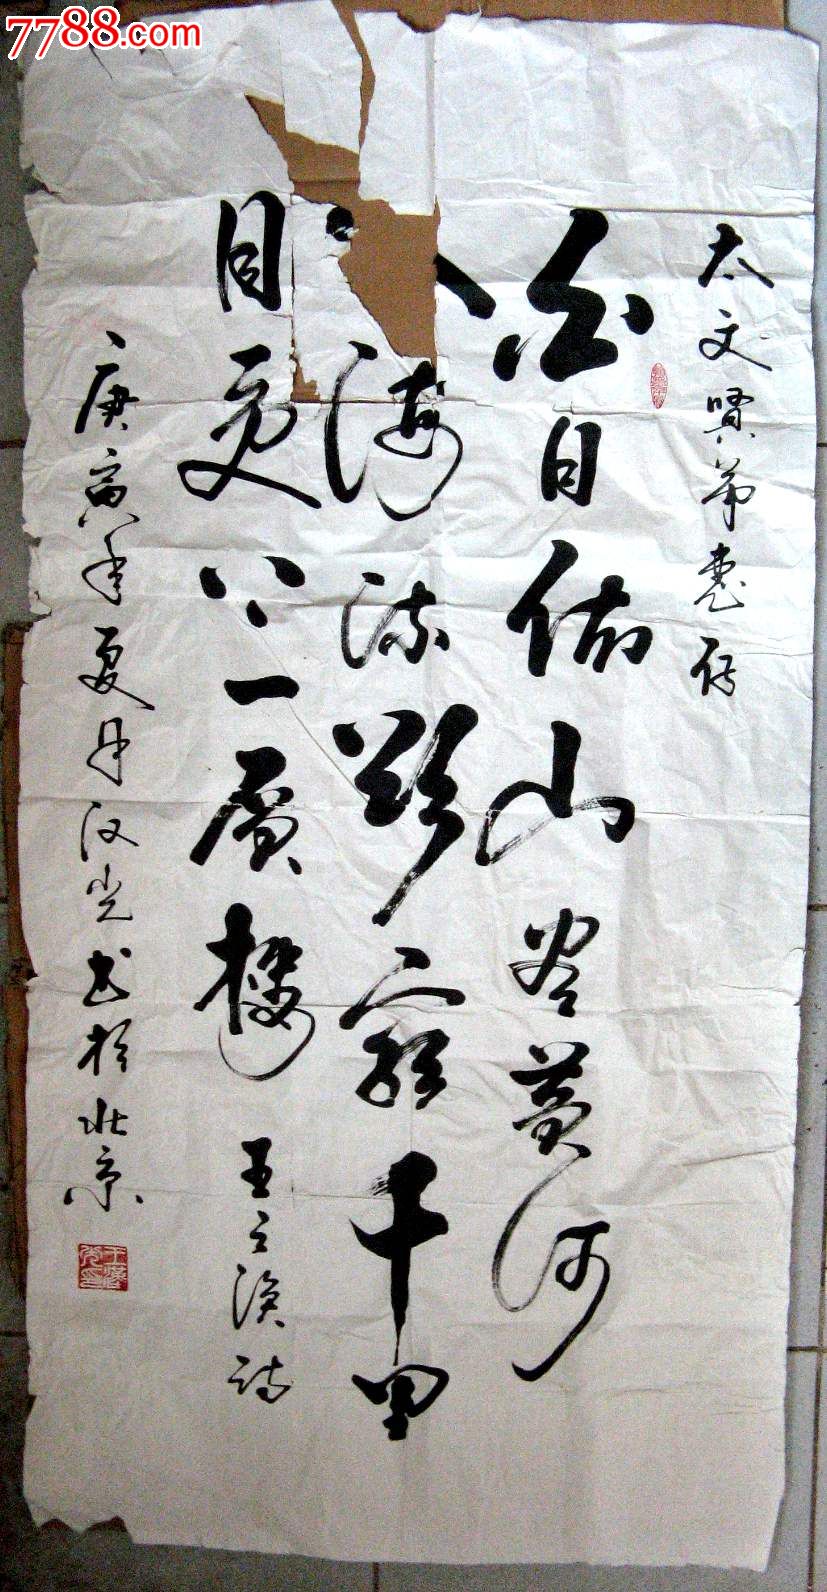 7788.com
太文贤弟惠存
白日依山尽黄河
入海流欲窮千里
目更上一層樓 王之涣诗
庚寅年夏月汉光书於北京